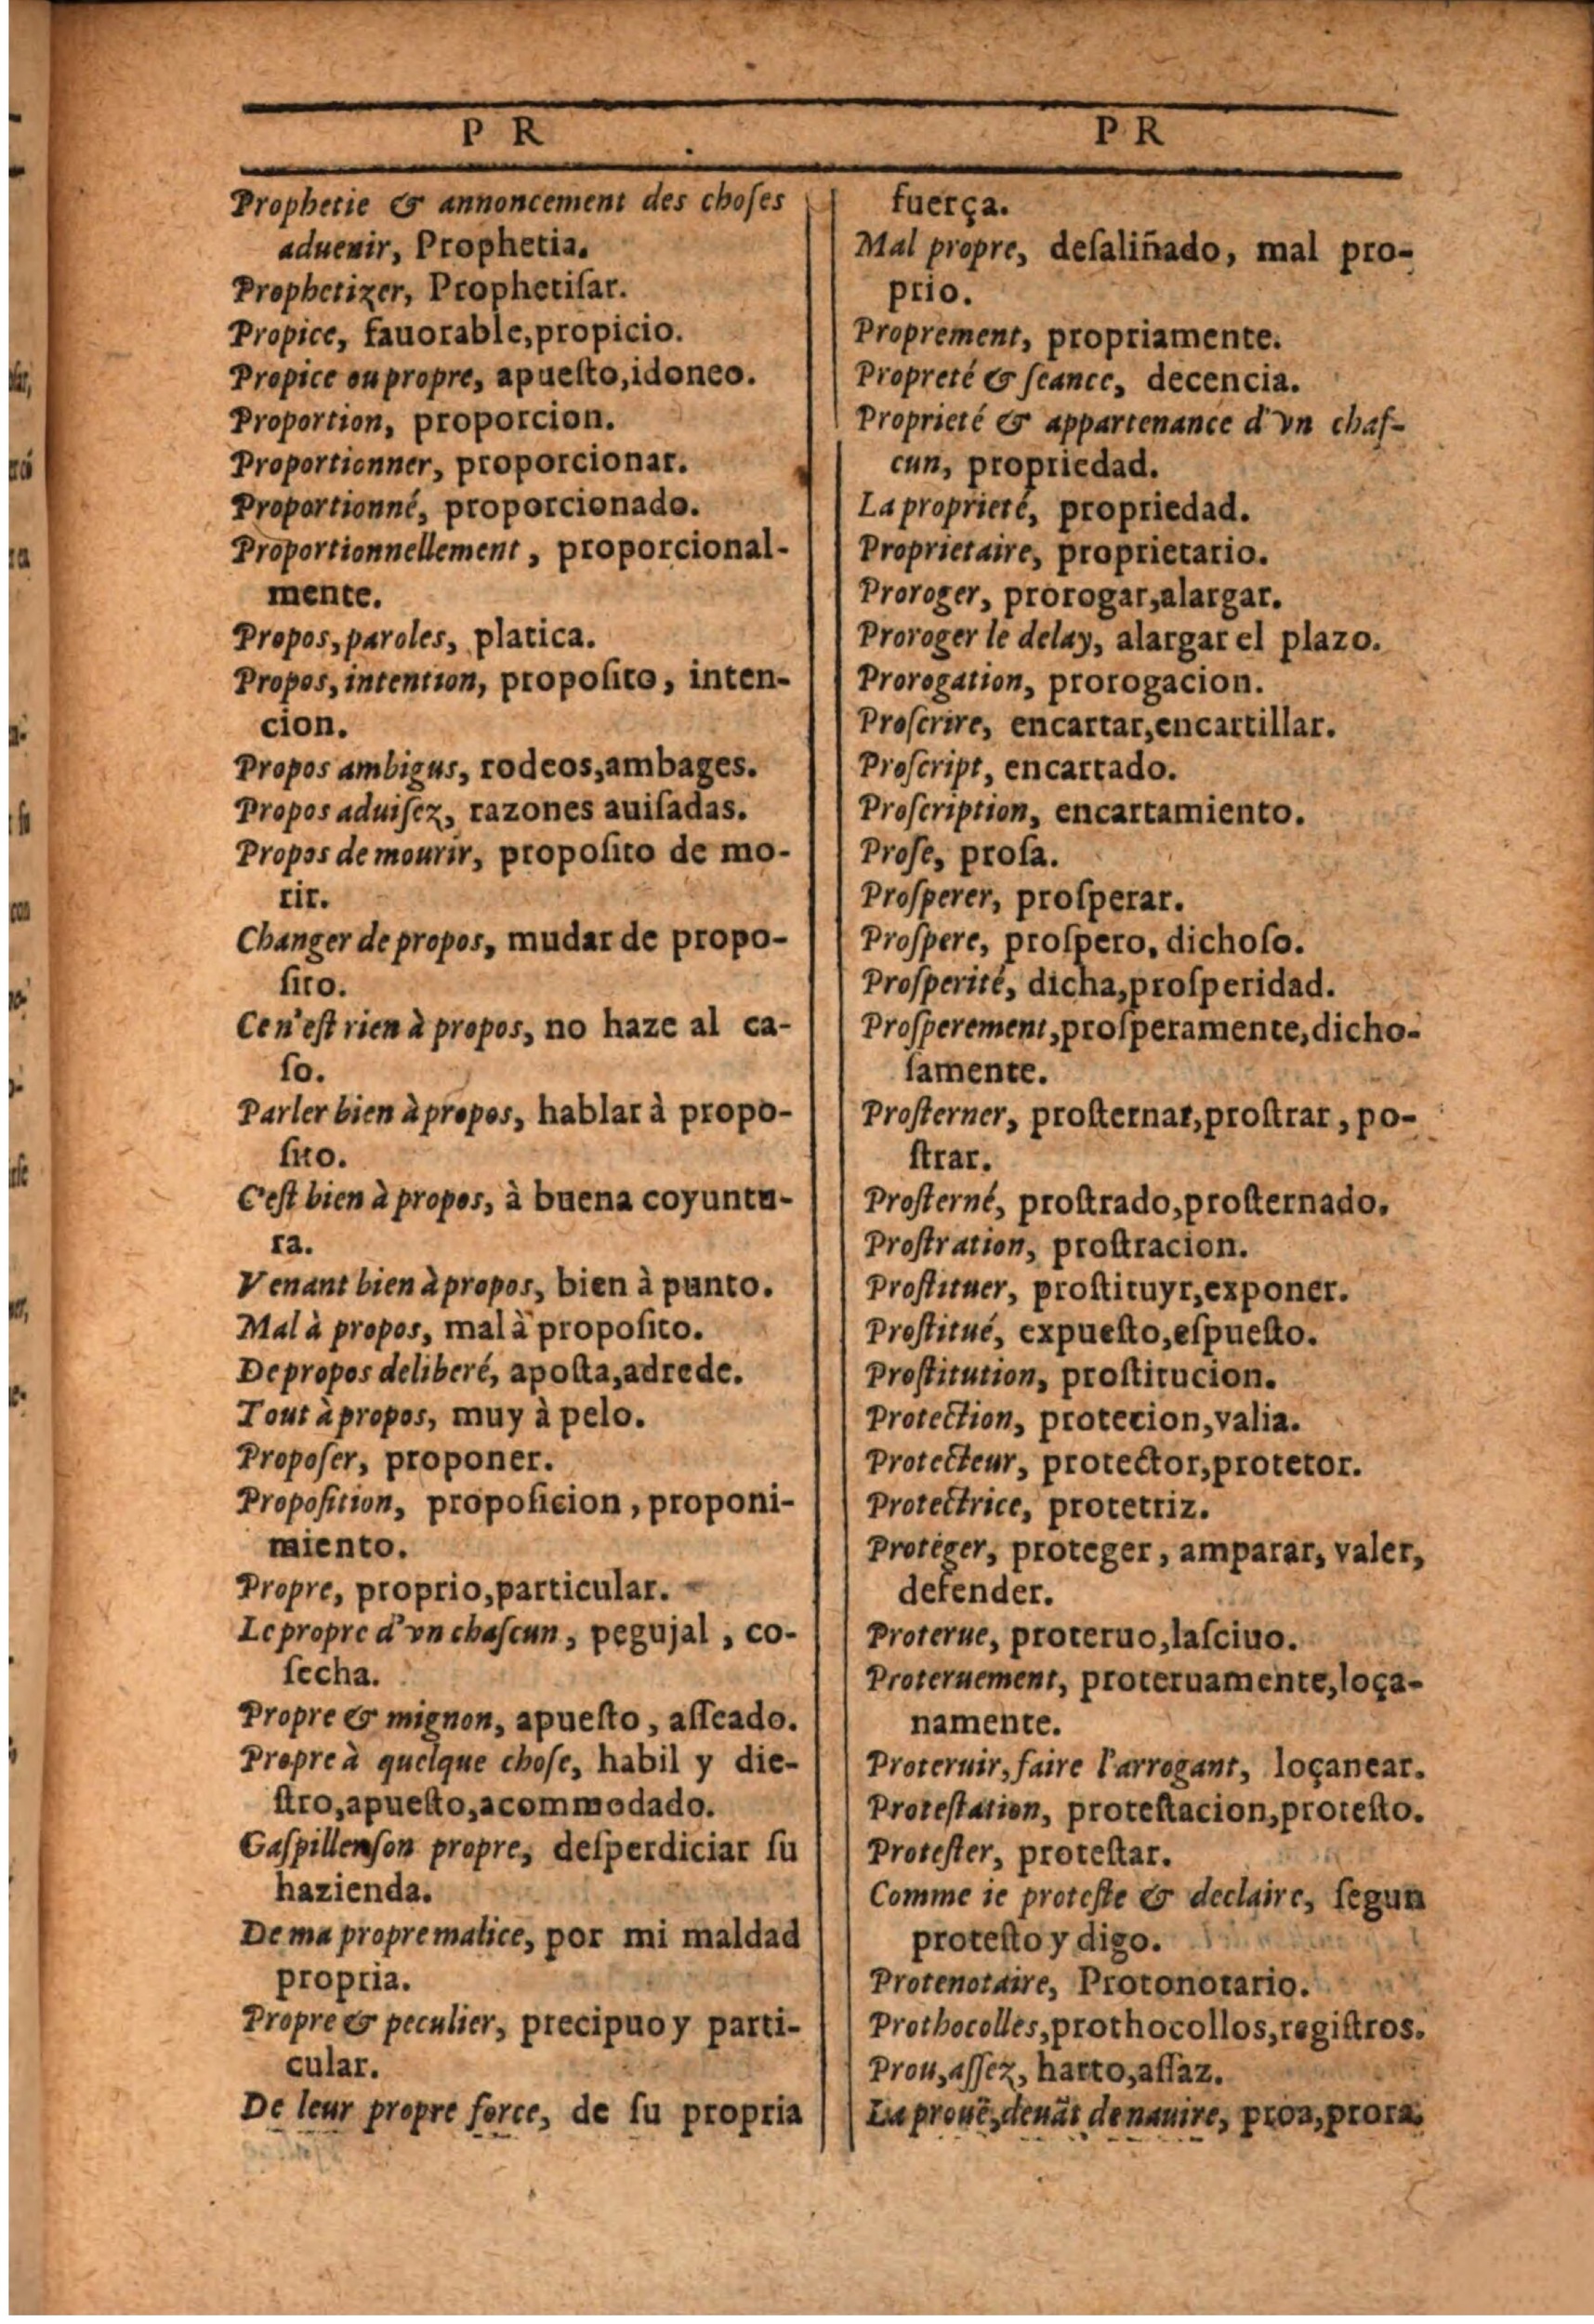 P R
Prophetie & annoncement des choſes
aduenir, Prophetia.
Prophetizer, Prophetiſar.
Propice, fauorable,propicio.
Propice ou propre, apueſto,idoneo.
Proportion, proporcion.
Proportionner, proporcionar.
Proportionné, proporcionado.
Proportionnellement, proporcional-
mente.
Propos,paroles, platica.
Propos,intention, propoſito, inten-
cion.
Propos ambigus, rodeos,ambages.
Propos aduiſez, razones auiſadas.
Propos de mourir, propoſito de mo-
rir.
Changer de propos, mudar de propo-
ſito.
Ce n'eſt rien à propos, no haze al ca-
ſo.
Parler bien à propos, hablar à propo-
ſito.
C'eſt bien à propos, à buena coyuntu-
ra.
Venant bien à propos, bien à punto.
Mal à propos, mal à propoſito.
De propos deliberé, apoſta,adrede.
Tout à propos, muy à pelo.
Propoſer, proponer.
Propoſition, propoſicion, proponi-
miento.
Propre, proprio,particular.
Le propre d'vn chaſcun, pegujal, co-
ſecha.
Propre & mignon, apueſto, aſſeado.
Propre à quelque choſe, habil y die-
ſtro,apueſto,acommodado.
Gaſpiller ſon propre, deſperdiciar ſu
hazienda.
De ma propre malice, por mi maldad
propria.
Propre & peculier, precipuo y parti-
cular.
De leur propre force, de ſu propria
P R
fuerça.
Mal propre, deſaliñado, mal pro-
prio.
Proprement, propriamente.
Propreté & ſeance, decencia.
Proprieté & appartenance d'vn chaſ-
cun, propriedad.
La proprieté, propriedad.
Proprietaire, proprietario.
Proroger, prorogar,alargar.
Proroger le delay, alargar el plazo.
Prorogation, prorogacion.
Proſcrire, encartar,encartillar.
Proſcript, encartado.
Proſcription, encartamiento.
Proſe, proſa.
Proſperer, proſperar.
Proſpere, proſpero, dichoſo.
Proſperité, dicha,proſperidad.
Proſperement,proſperamente,dicho-
ſamente.
Proſterner, proſternar,proſtrar, po-
ſtrar.
Proſterné, proſtrado,proſternado.
Proſtration, proſtracion.
Proſtituer, proſtituyr,exponer.
Proſtitué, expueſto,eſpueſto.
Proſtitution, proſtitucion.
Protection, protecion,valia.
Protecteur, protector,protetor.
Protectrice, protetriz.
Proteger, proteger, amparar, valer,
defender.
Proterue, proteruo,laſciuo.
Proteruement, proteruamente,loça-
namente.
Proteruir,faire l'arrogant, loçanear.
Proteſtation, proteſtacion,proteſto.
Proteſter, proteſtar.
Comme ie proteſte & declaire, ſegun
proteſto y digo.
Protenotaire, Protonotario.
Prothocolles,prothocollos,regiſtros.
Prou,aſſez, harto,aſſaz.
La prouë,deuāt de nauire, proa,prora.